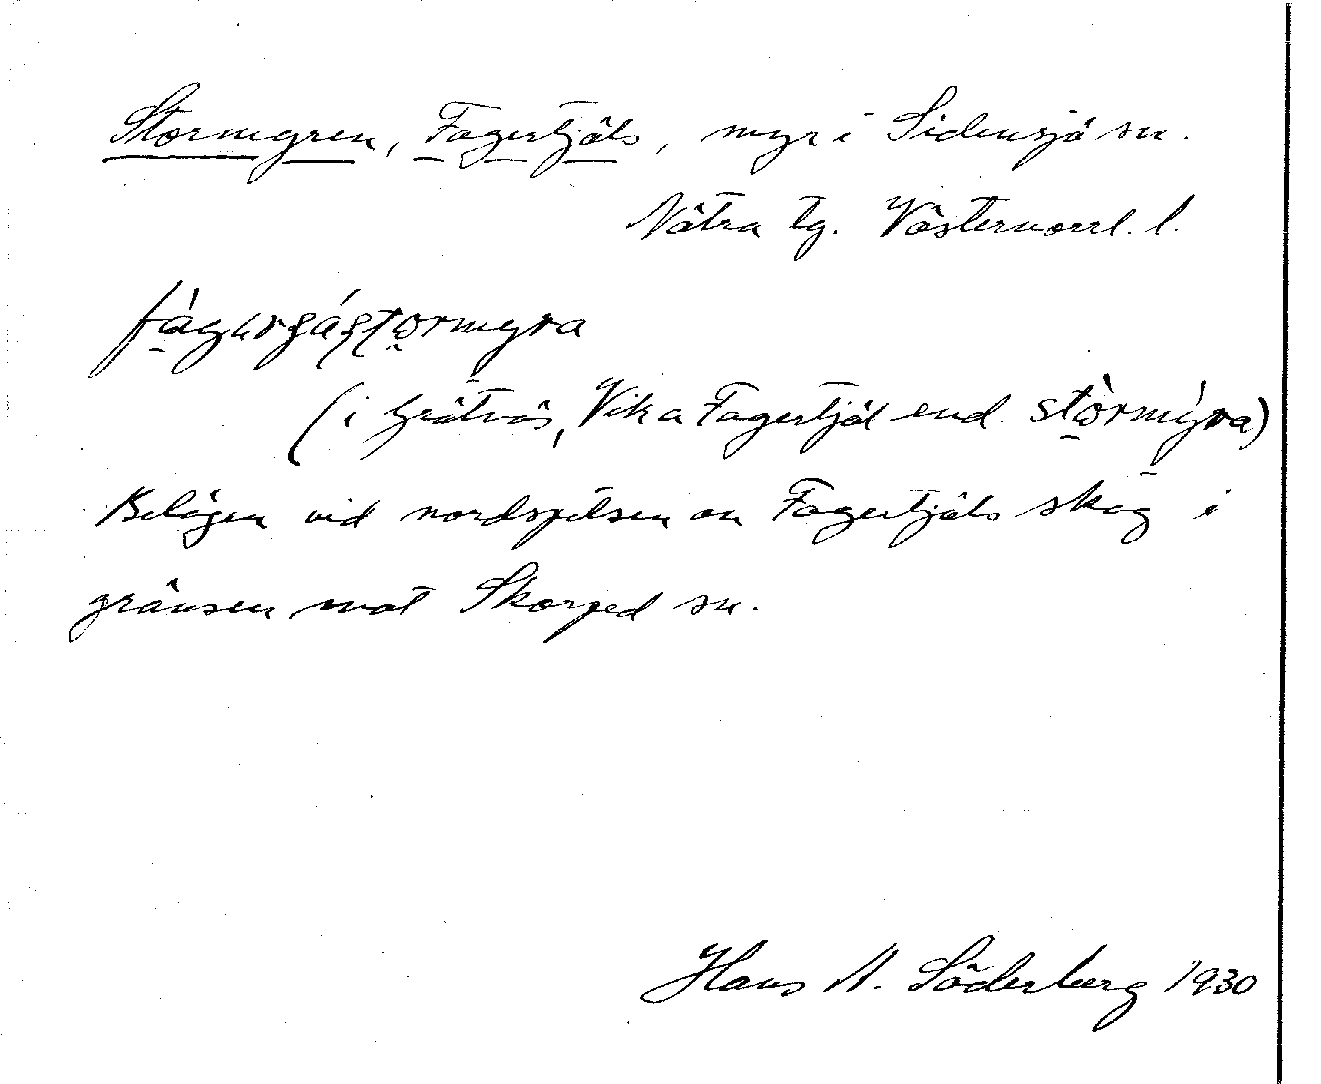 Stormyren, Fagertjäls, myr i Sidensjö sn.
Nätra tg. Västernorrl. l.
(i Grätnäs, Vik a Fagertjäl end stòrmýra)
Belägen vid nordspetsen av Fagertjäls skog i
gränsen mot Skorped sn.
Hans A. Söderberg 1930